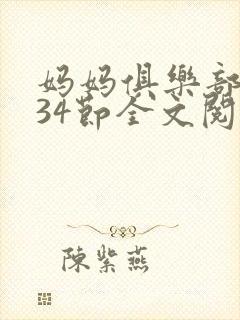 妈妈俱樂部
34節全文閱
陳紫燕